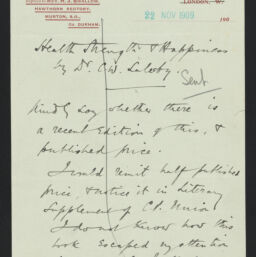 REV. H. J. SWALLOW,
HAWTHORN RECTORY,
MURTON, S.O.,
CO DURHAM.
LONDON, W.
190
22 NOV 1909
Health Strength & Happiness
by Dr. C.W. Saleeby.
Sent
Kindly say whether there is
a recent Edition of this, &
published price.
I would remit half published
price, & notice it in Literary
Supplement of Ch. Union
I do not know how this
book escaped my attention